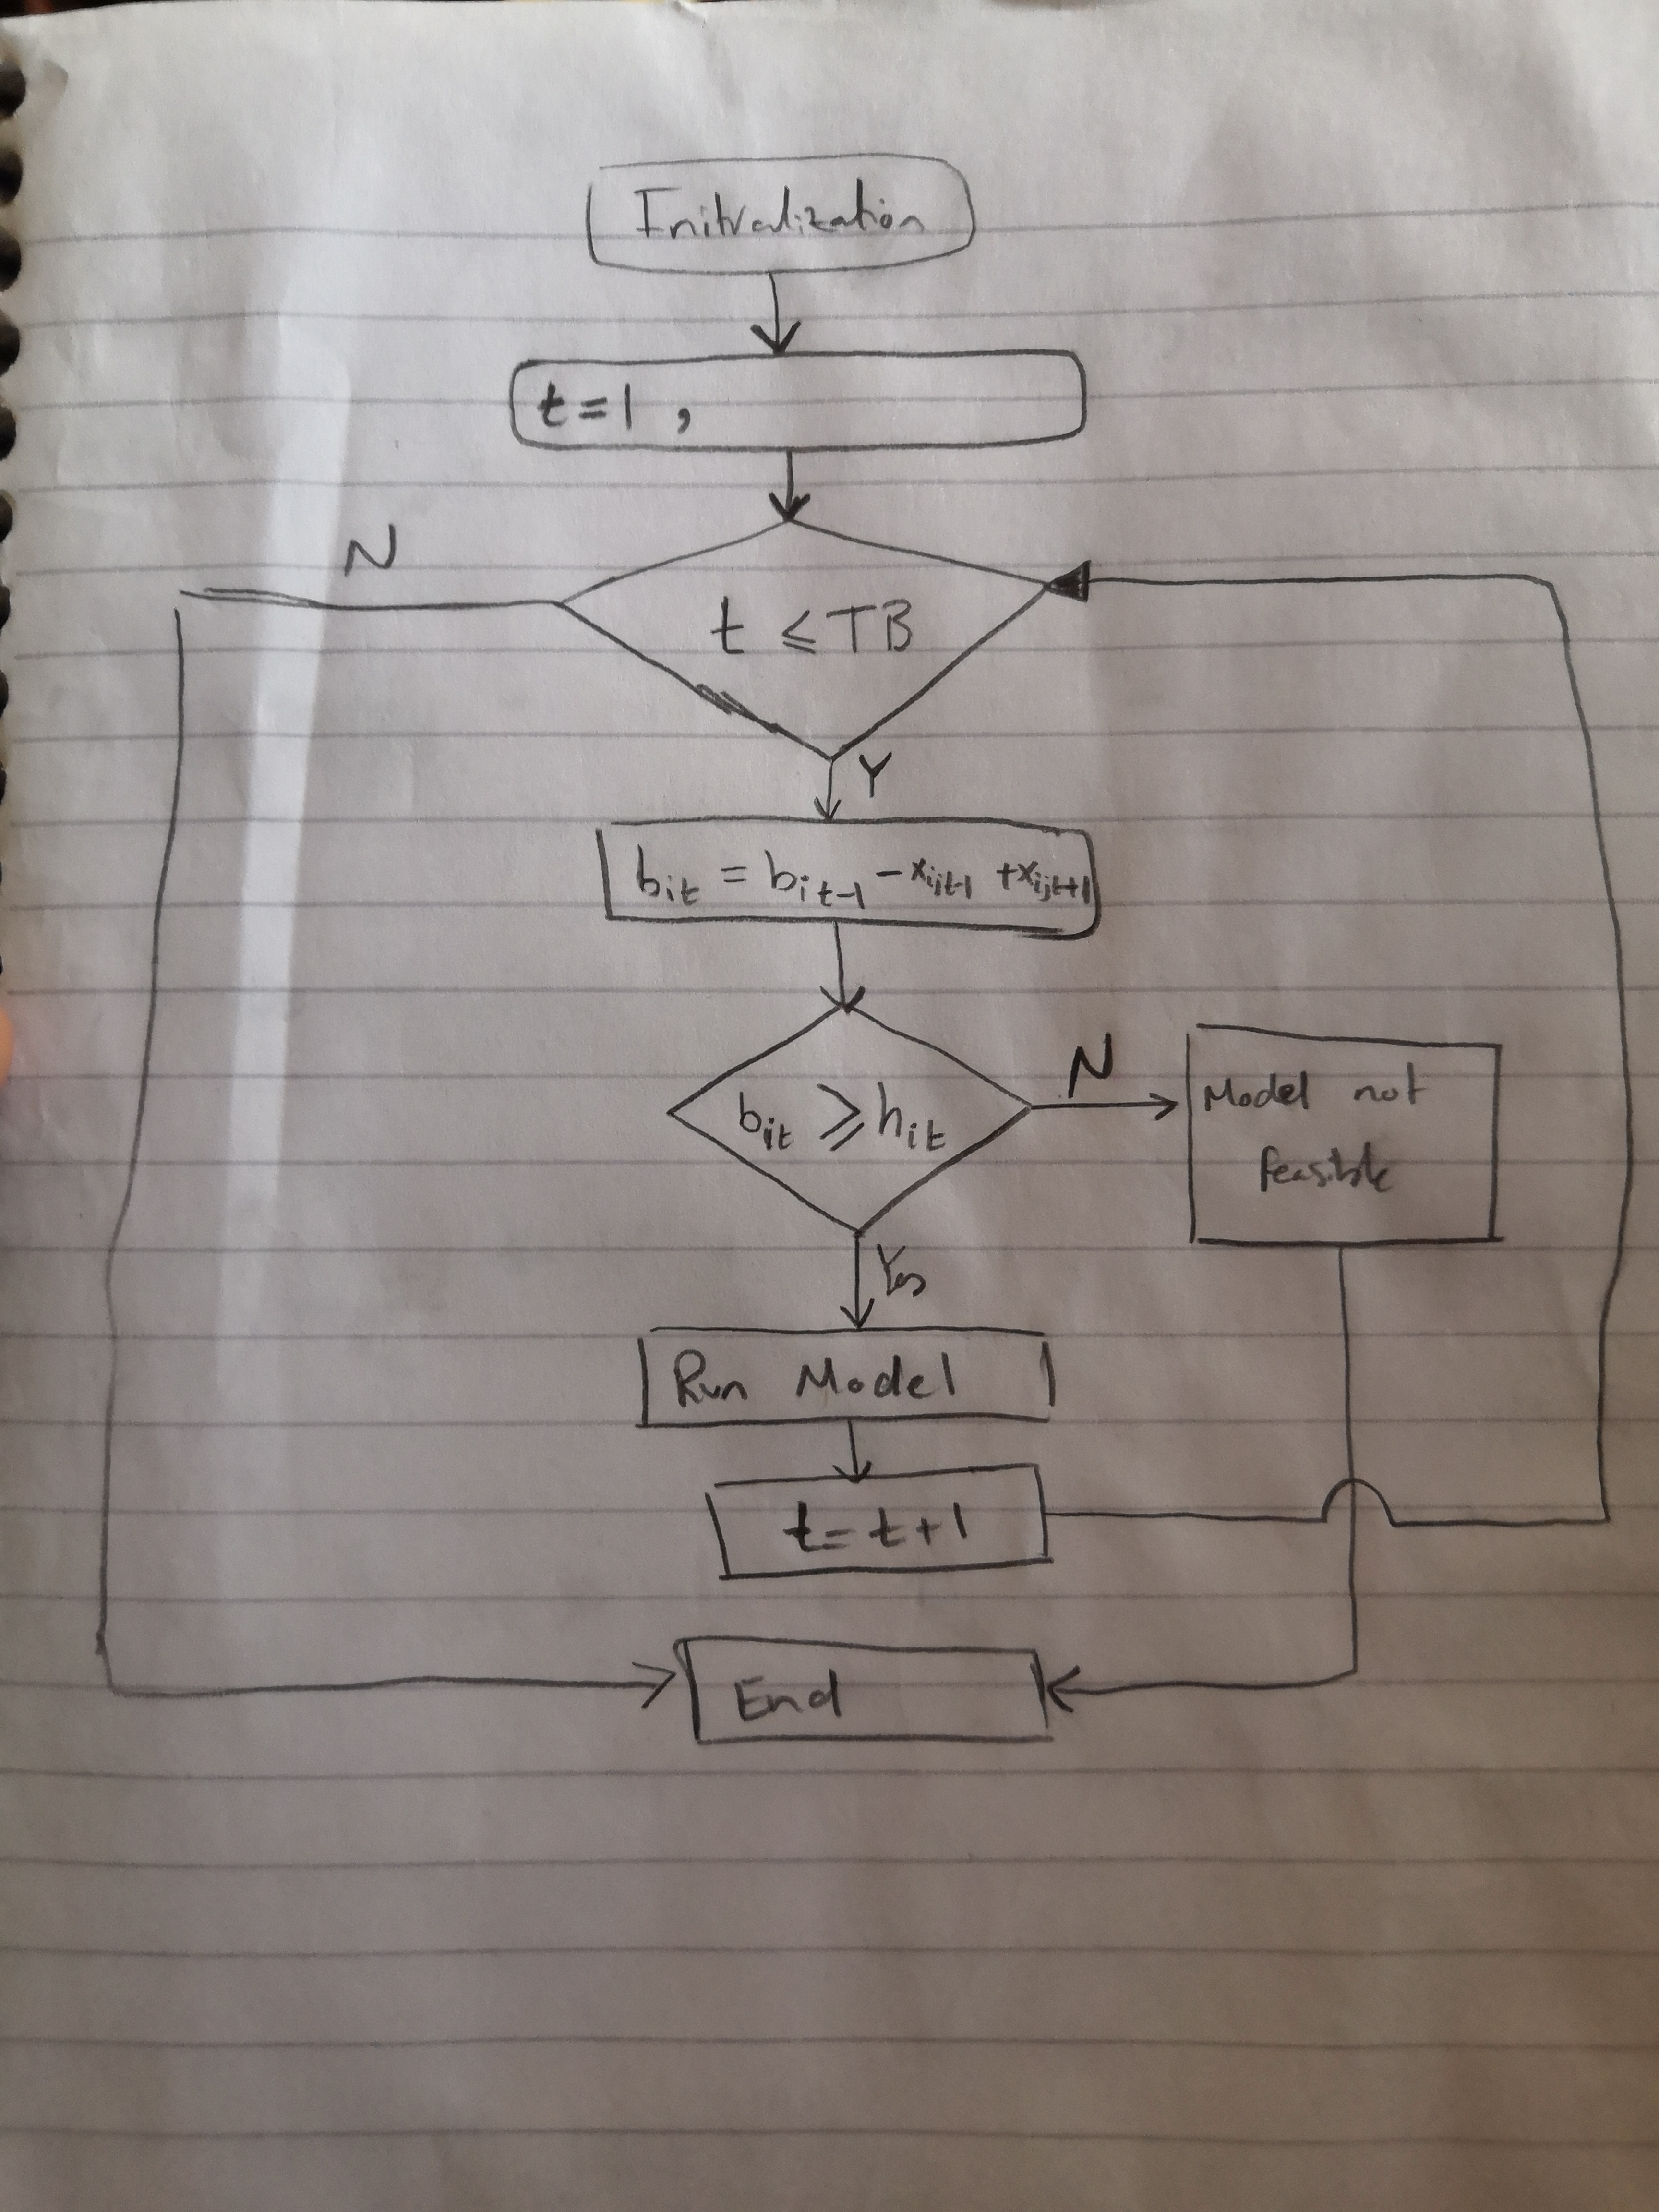 Initialization
t=1 ,
N
t ⩽ TB
Y
b_it = b_it-1 - x_ijt-1 + x_ijt+1
b_it ⩾ h_it
N
Model not
feasible
Yes
Run Model
t= t+1
End